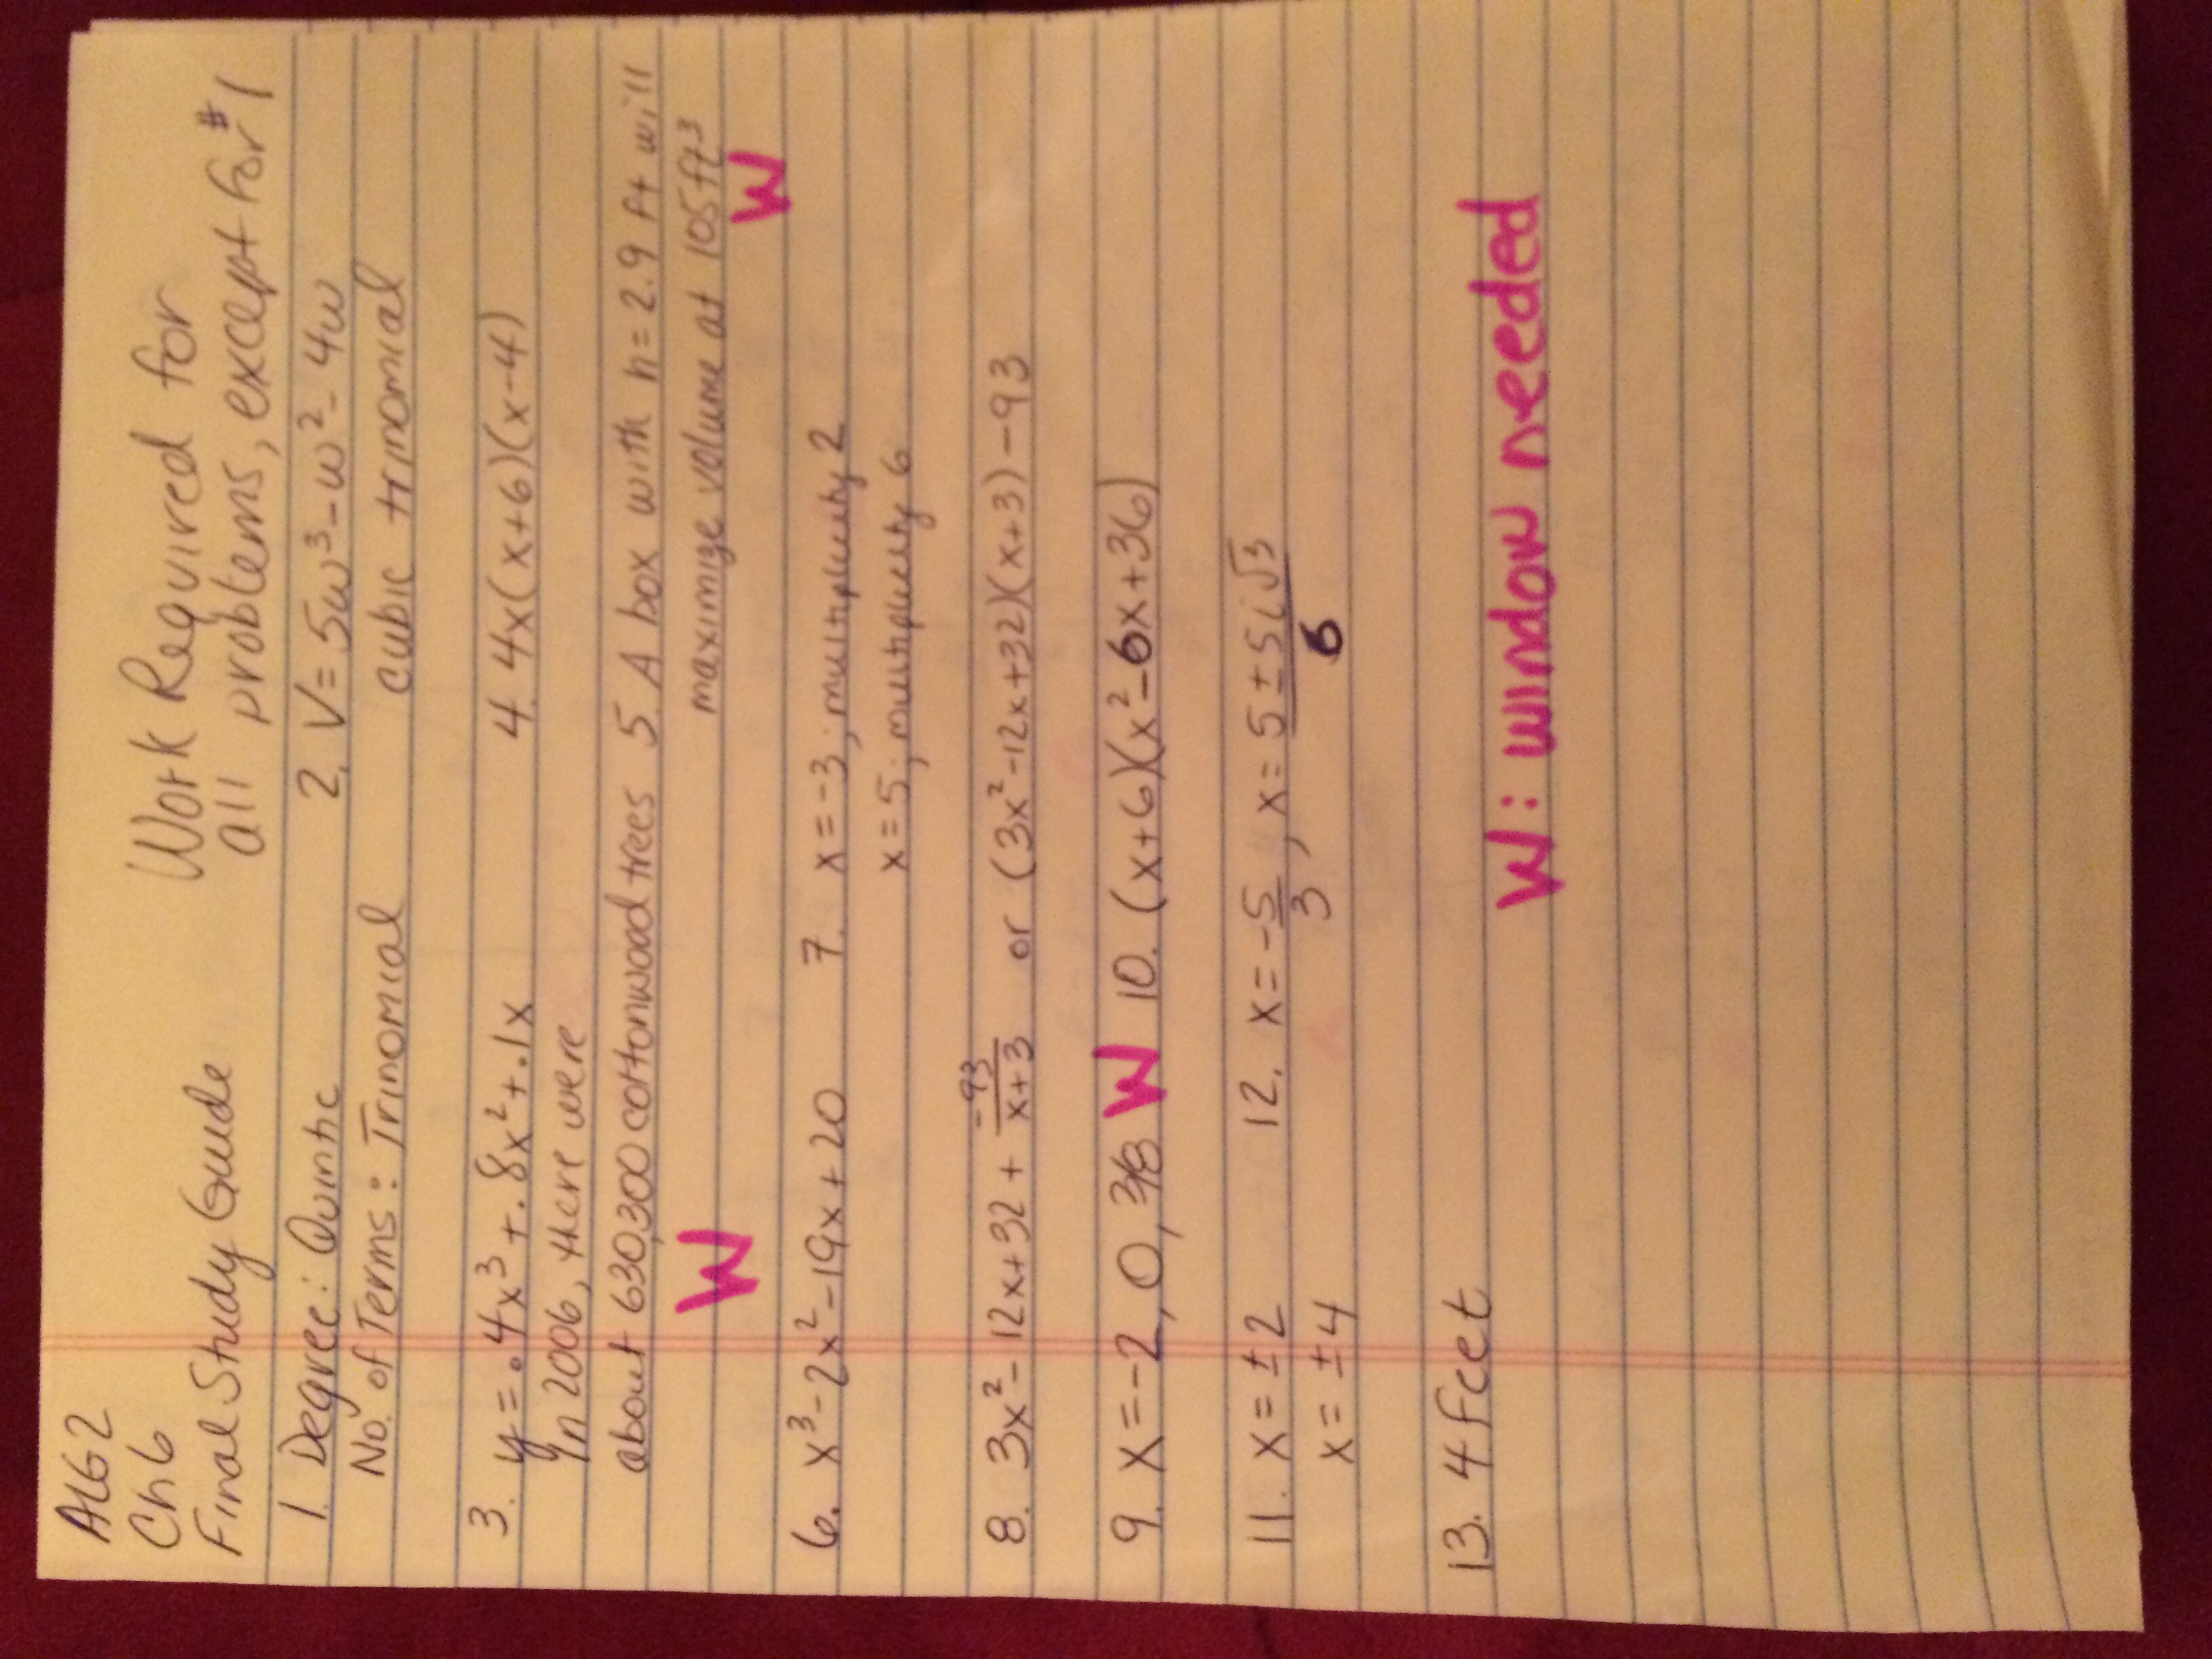 ALG 2
Ch 6
Final Study Guide
Work Required for
all problems, except for #1
1. Degree: Quintic
No. of Terms: Trinomial
2. V = 5w³ - w² - 4w
cubic trinomial
3. y = .4x³ + .8x² + .1x
In 2006, there were
about 630,300 cottonwood trees
W
4. 4x(x+6)(x-4)
5. A box with h = 2.9 ft will
maximize volume at 105 ft³
W
6. x³ - 2x² - 19x + 20
7. x = -3; multiplicity 2
x = 5; multiplicity 6
8. 3x² - 12x + 32 + -93/(x+3) or (3x² - 12x + 32)(x+3) - 93
9. x = -2, 0, 3/8 W
10. (x+6)(x² - 6x + 36)
11. x = ±2
x = ±4
12. x = -5/3, x = (5 ± 5i√3)/6
13. 4 feet
W: window needed